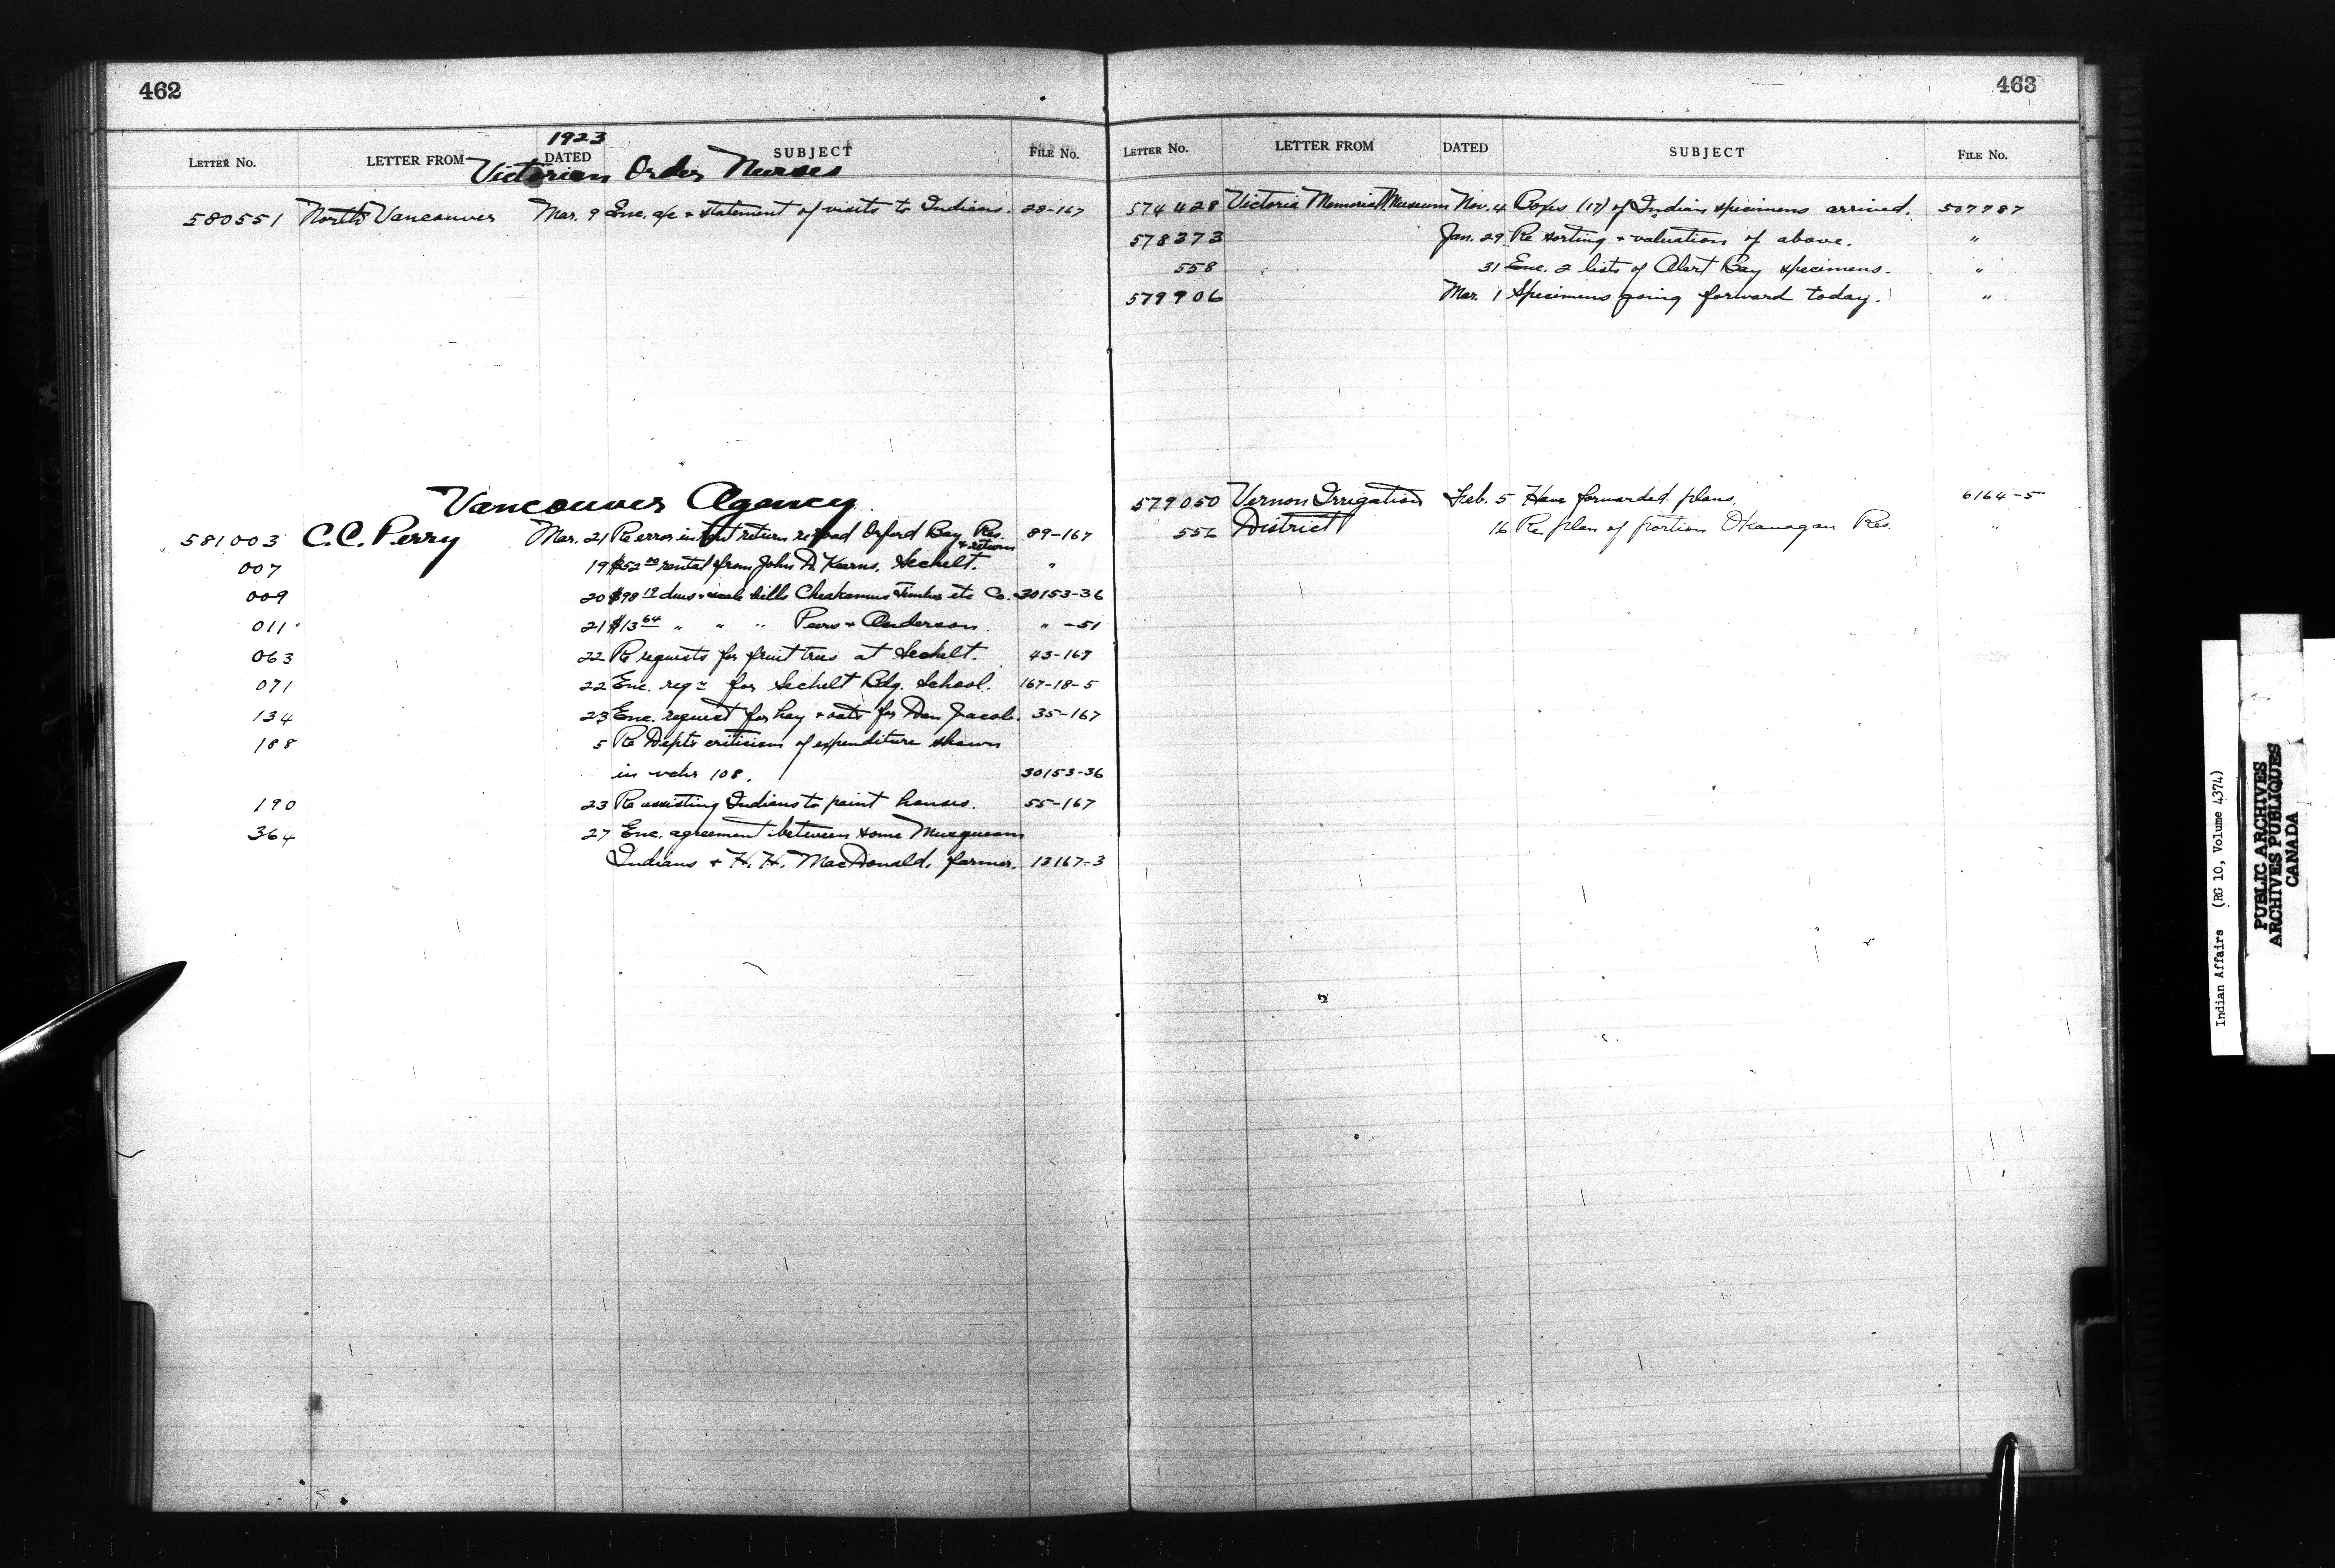 462
1923
LETTER No. LETTER FROM DATED SUBJECT FILE No.
Victorian Order Nurses
580551 North Vancouver Mar. 9 Enc. a/c & statement of visits to Indians. 28-167
Vancouver Agency
581003 C.C. Perry Mar. 21 Re error in return re road Orford Bay Res. 89-167
007 19 $52.00 rental from John D. Kearns, Sechelt. & return "
009 20 $98.19 dues & scale bills Cheakamus Timber etc Co. 30153-36
011 21 $13.64 " " " Peers & Anderson. " -51
063 22 Re requests for fruit trees at Sechelt. 43-167
071 22 Enc. reqn for Sechelt Bdg. School. 167-18-5
134 23 Enc. request for hay & oats for Dan Jacob. 35-167
188 5 Re Depts criticism of expenditure shown
in vchr 108. 30153-36
190 23 Re assisting Indians to paint houses. 55-167
364 27 Enc. agreement between some Musqueam
Indians & H.H. MacDonald, farmer. 13167-3
463
LETTER No. LETTER FROM DATED SUBJECT FILE No.
574428 Victoria Memorial Museum Nov. 4 Boxes (17) of Indian specimens arrived. 507787
578373 Jan. 29 Re sorting & valuation of above. "
558 31 Enc. 2 lists of Alert Bay specimens. "
579906 Mar. 1 Specimens going forward today. "
579050 Vernon Irrigation Feb. 5 Have forwarded plans. 6164-5
556 District 16 Re plan of portion Okanagan Res. "
Indian Affairs (RG 10, Volume 4374)
PUBLIC ARCHIVES
ARCHIVES PUBLIQUES
CANADA